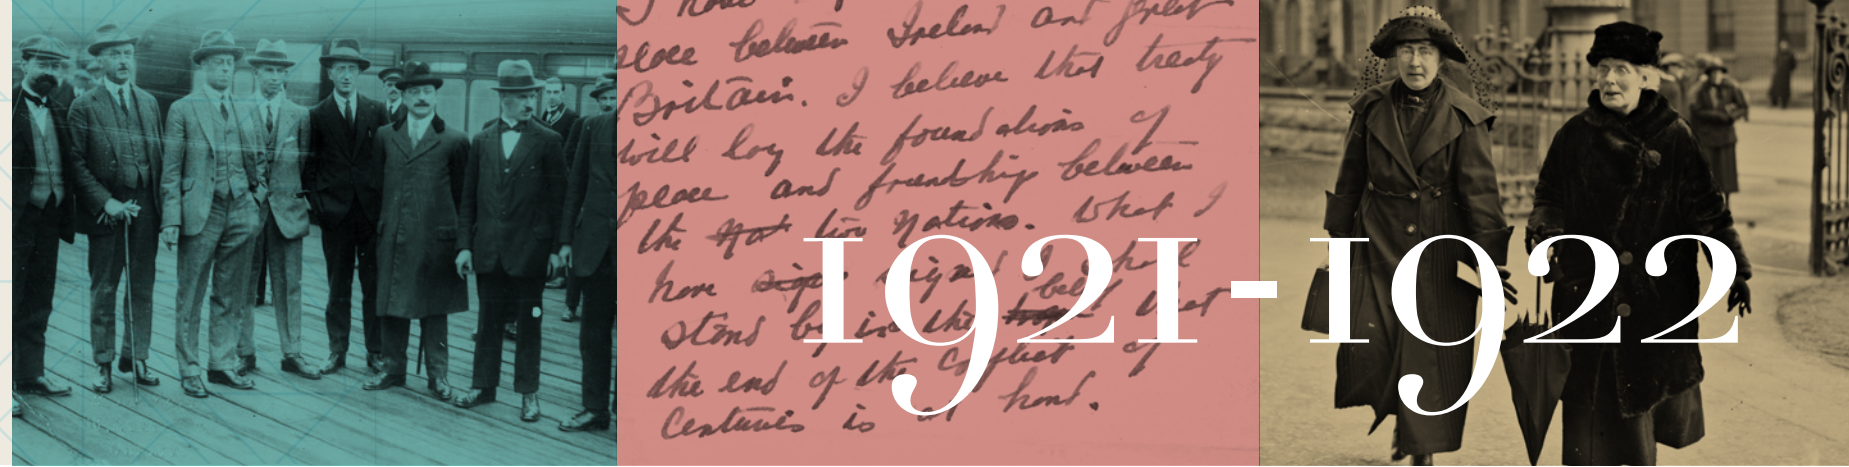 I have
peace between Ireland and Great
Britain. I believe that treaty
will lay the foundations of
peace and friendship between
the Nat two Nations. What I
have sign signed I shall
stand by in the belief that
the end of the conflict of
Centuries is at hand.
1921-1922